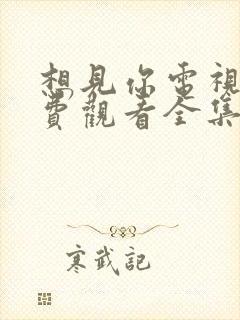 想見你電視
費觀看全集
寒武記